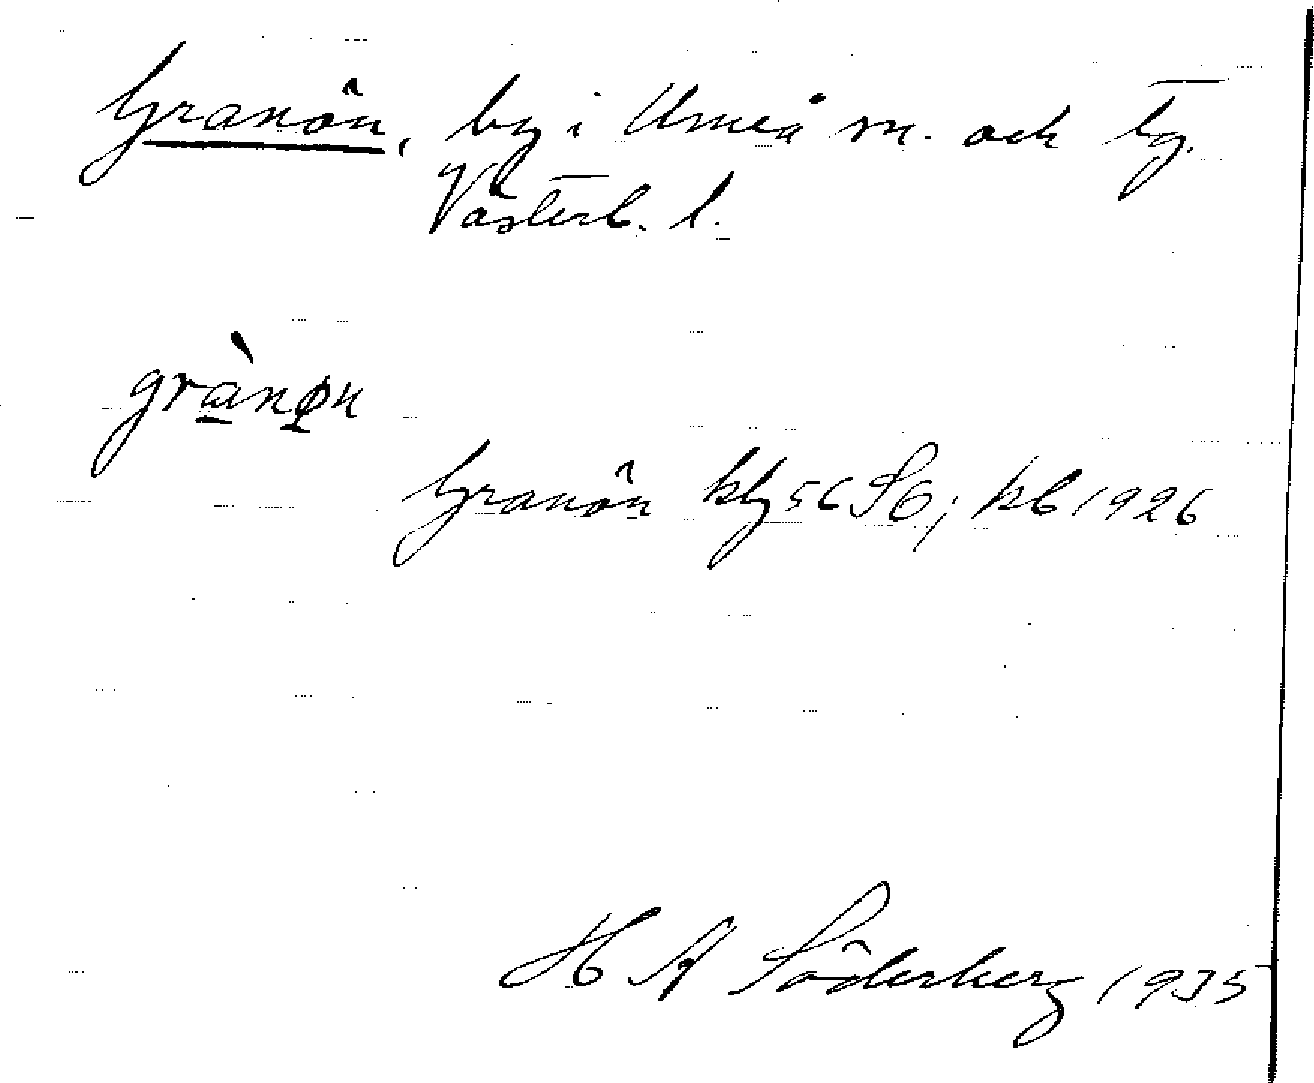 Granön, by i Umeå sn. och tg.
Västerb. l.
grànøn
Granön kbg 56 S6; kb 1926
H A Söderberg 1935